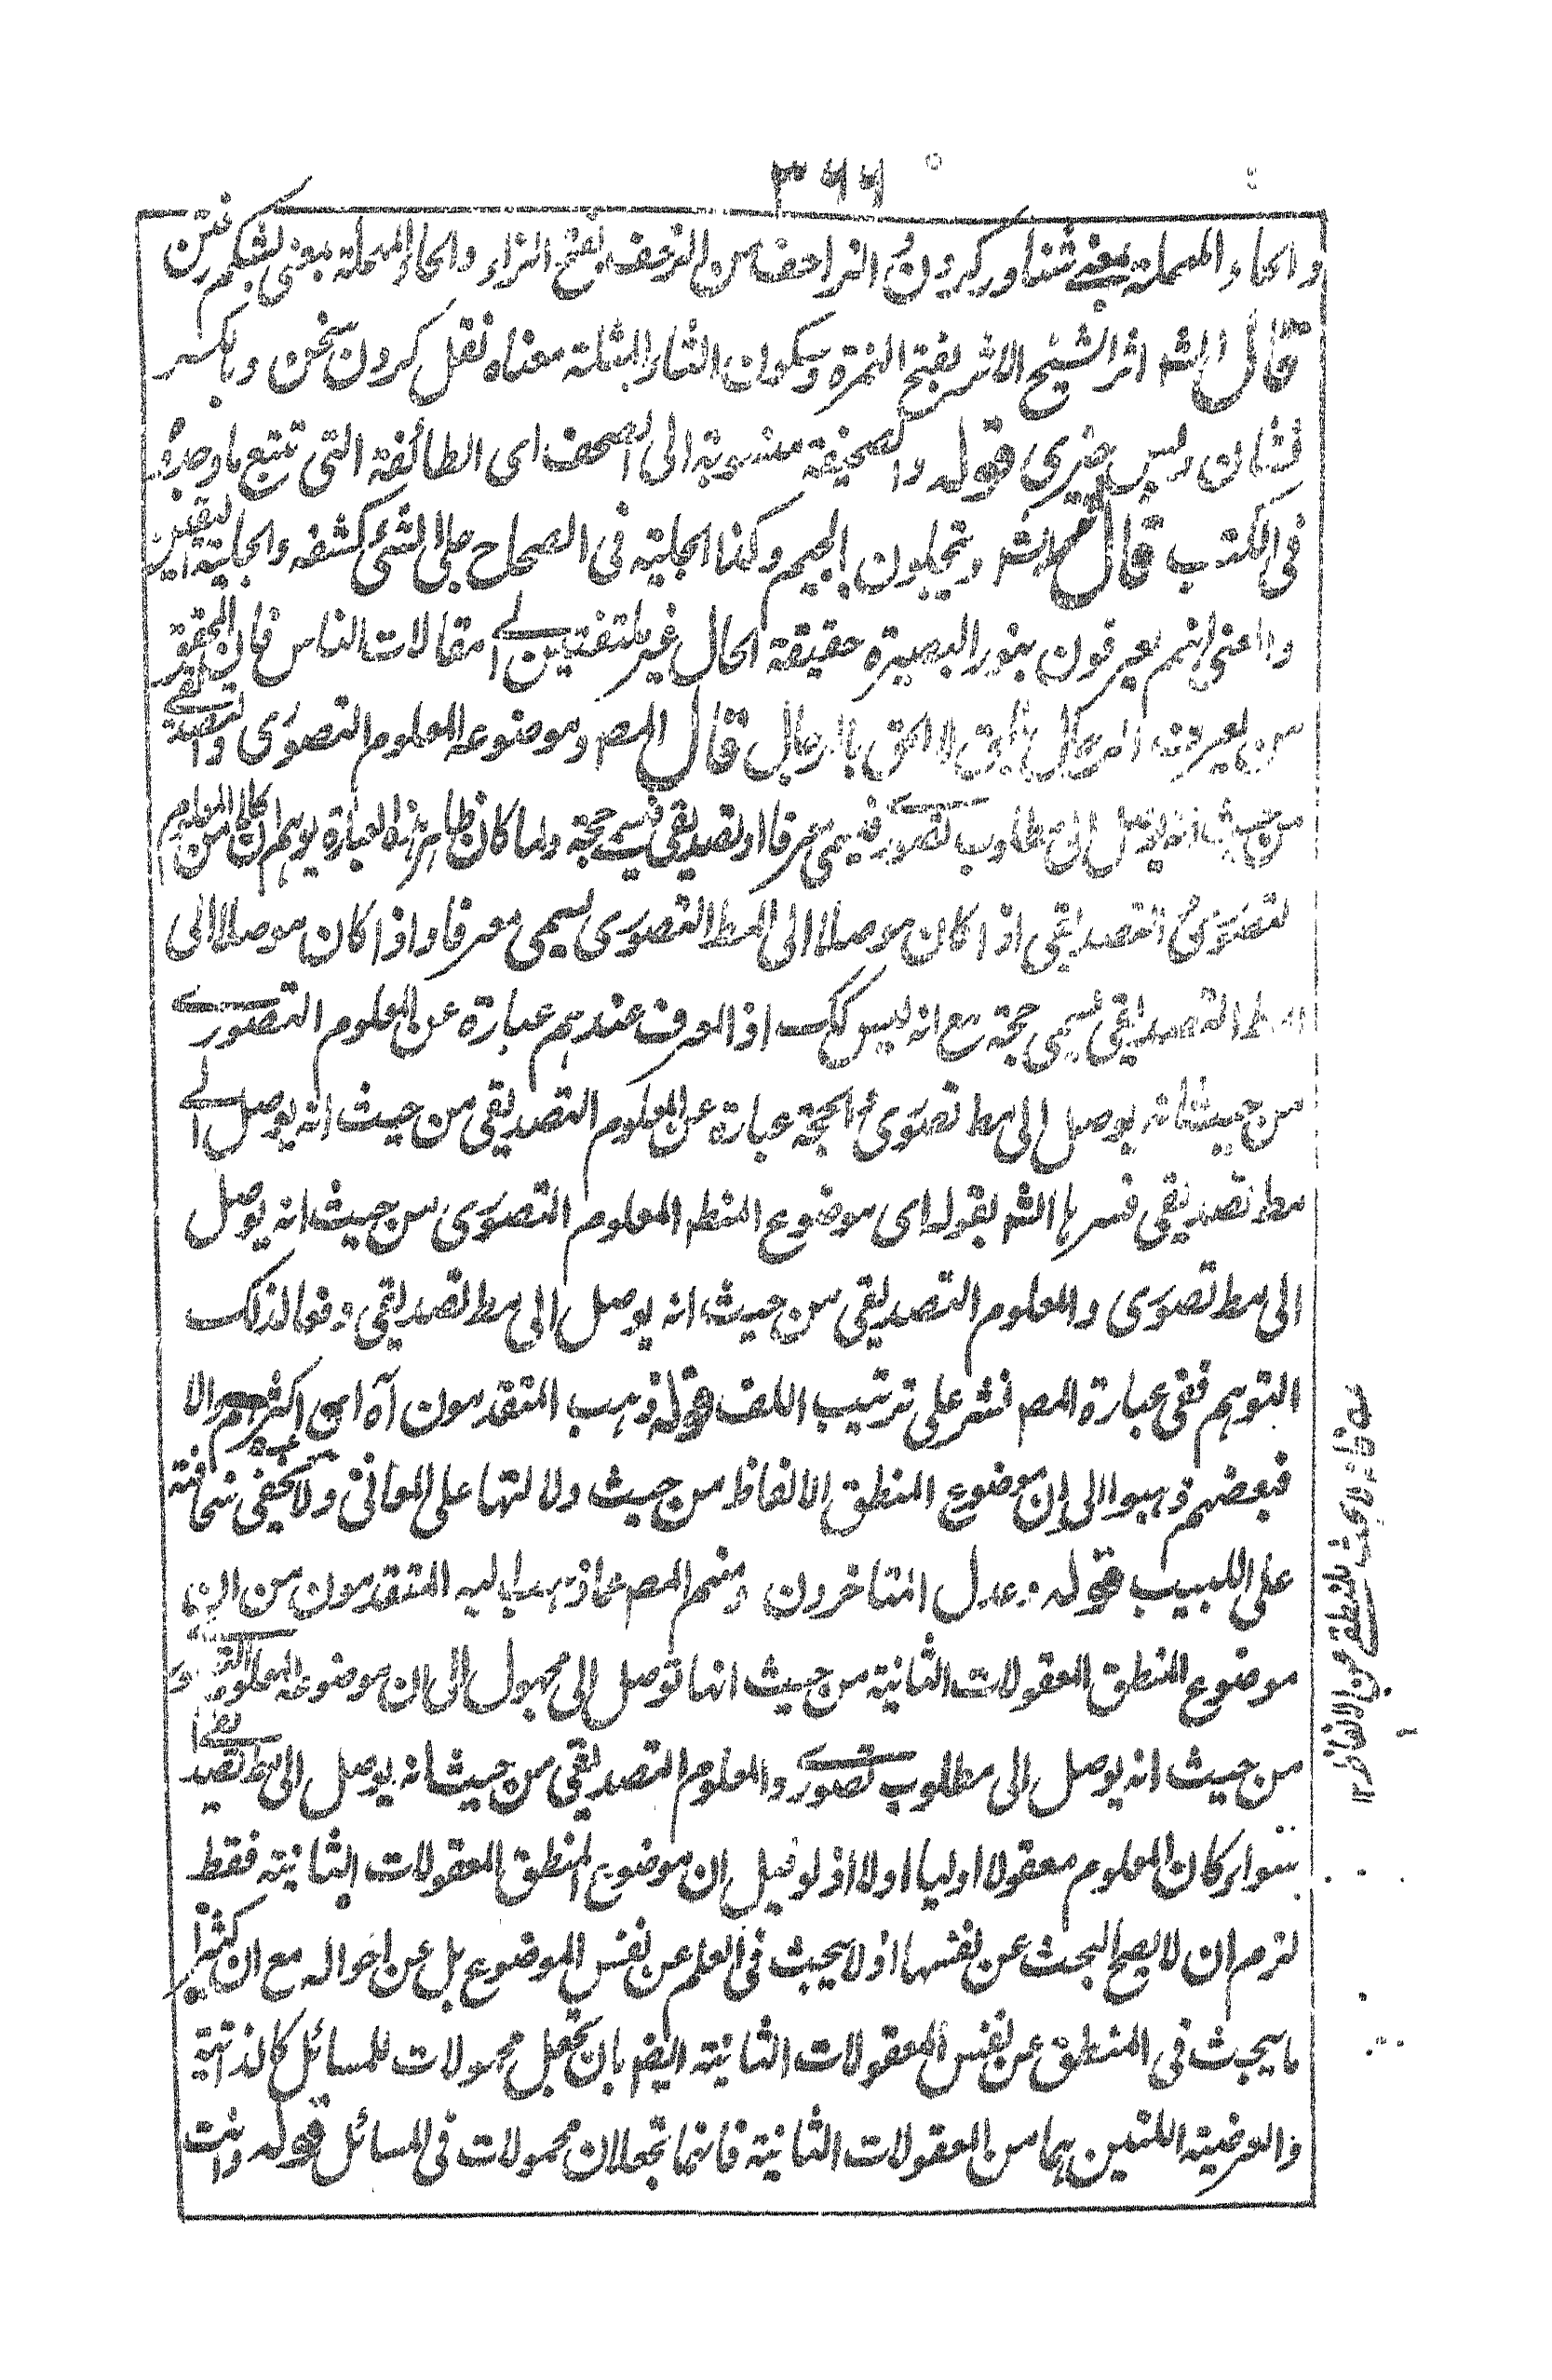 ٣٦٦
والحاء المهملة بمعنى شناور كردن الزاحف من الزحف بفتح الزاء والحاء المهملة بمعنى لشكر رفتن
قال الش اثر الشيخ الاثر بفتح الهمزة وسكون الثاء المثلثة معناه نقل كردن سخن وبالكسر
نشان وپس چيزى قوله والصحيفة منسوبة الى الصحف اى الطائفة التى تتبع ما وجدوه
فى الكتب قال الش ويتجلون بالجيم وكذا الجلية فى الصحاح جلى الشئ كشفه والجلية اليقين
واعنى انهم يعرفون بنور البصيرة حقيقة الحال غير ملتفتين الى مقالات الناس فان المحقق
من يعرف الرجال بالحق لا الحق بالرجال قال المص وموضوعه المعلوم التصورى والتصديقى
من حيث انه يوصل الى مطلوب تصورى فيسمى معرفا او تصديقى فيسمى حجة ولما كان ظاهر هذه العبارة يوهم ان كلا من المعلوم
التصورى والتصديقى اذا كان موصلا الى المط التصورى يسمى معرفا واذا كان موصلا الى
المط التصديقى يسمى حجة مع انه ليس كك اذ المعرف عندهم عبارة عن المعلوم التصورى
من حيث انه يوصل الى مط تصورى والحجة عبارة عن المعلوم التصديقى من حيث انه يوصل الى
مط تصديقى فسرها الش بقوله اى موضوع المنط المعلوم التصورى من حيث انه يوصل
الى مط تصورى والمعلوم التصديقى من حيث انه يوصل الى مط تصديقى دفعا لذلك
التوهم ففى عبارة المص نشر على ترتيب اللف قوله ذهب المتقدمون آه اى اكثرهم والا
فبعضهم ذهبوا الى ان موضوع المنطق الالفاظ من حيث دلالتها على المعانى ولا يخفى سخافته
على اللبيب قوله وعدل المتاخرون ومنهم المص عما ذهب اليه المتقدمون من ان
موضوع المنطق المعقولات الثانية من حيث انها توصل الى مجهول الى ان موضوعه المعلوم التصورى
من حيث انه يوصل الى مطلوب تصورى والمعلوم التصديقى من حيث انه يوصل الى مط تصديقى
سواء كان المعلوم معقولا اوليا او لا اذ لو قيل ان موضوع المنطق المعقولات الثانية فقط
لزم ان لا يصح البحث عن نفسها اذ لا يبحث فى العلم عن نفس الموضوع بل عن احواله مع ان كثيرا
ما يبحث فى المنطق عن نفس المعقولات الثانية ايضا بان تجعل محمولات للمسائل كالذاتية
والعرضية اللتين هما من المعقولات الثانية فانهما تجعلان محمولات فى المسائل قوله وانت
فانه لا يبحث المنطقى عن الالفاظ ١٢